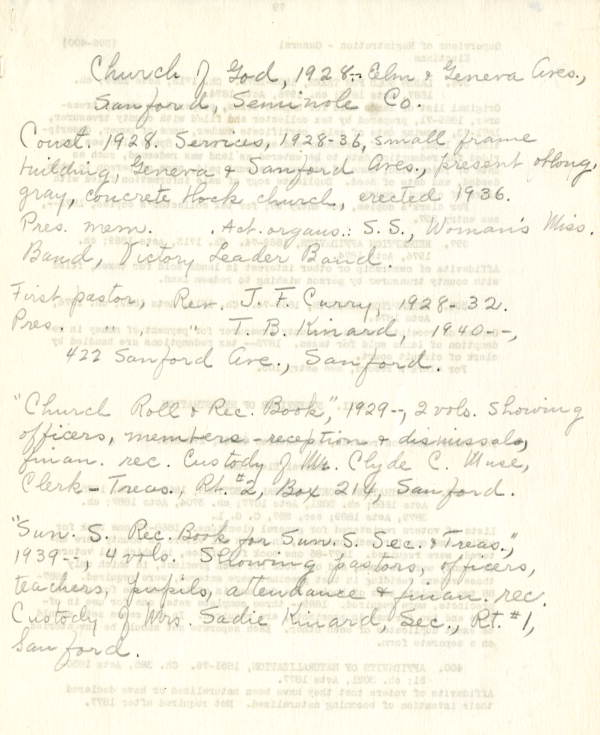 Church of God, 1928-- Elm & Geneva Aves.,
Sanford, Seminole Co.
Const. 1928. Services, 1928-36, small frame
building, Geneva & Sanford Aves., present oblong,
gray, concrete block church, erected 1936.
Pres. mem.   . Act. organs.: S.S., Woman's Miss.
Band, Victory Leader Band.
First pastor, Rev. J. F. Curry, 1928-32.
Pres. " " T. B. Kinard, 1940--,
422 Sanford Ave., Sanford.
"Church Roll & Rec. Book", 1929--, 2 vols. Showing
officers, members - reception & dismissals,
finan. rec. Custody of Mr. Clyde C. Muse,
Clerk-Treas., Rt. #2, Box 214, Sanford.
"Sun. S. Rec. Book for Sun. S. Sec. & Treas.",
1939--, 4 vols. Showing pastors, officers,
teachers, pupils, attendance & finan. rec.
Custody of Mrs. Sadie Kinard, Sec., Rt. #1,
Sanford.